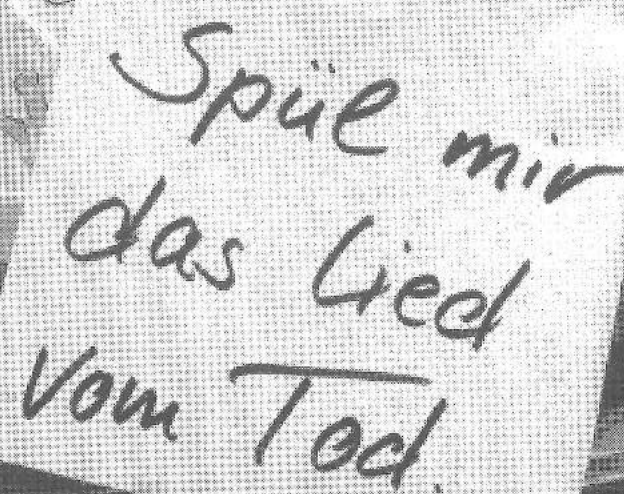 Spül mir
das Lied
vom Tod.